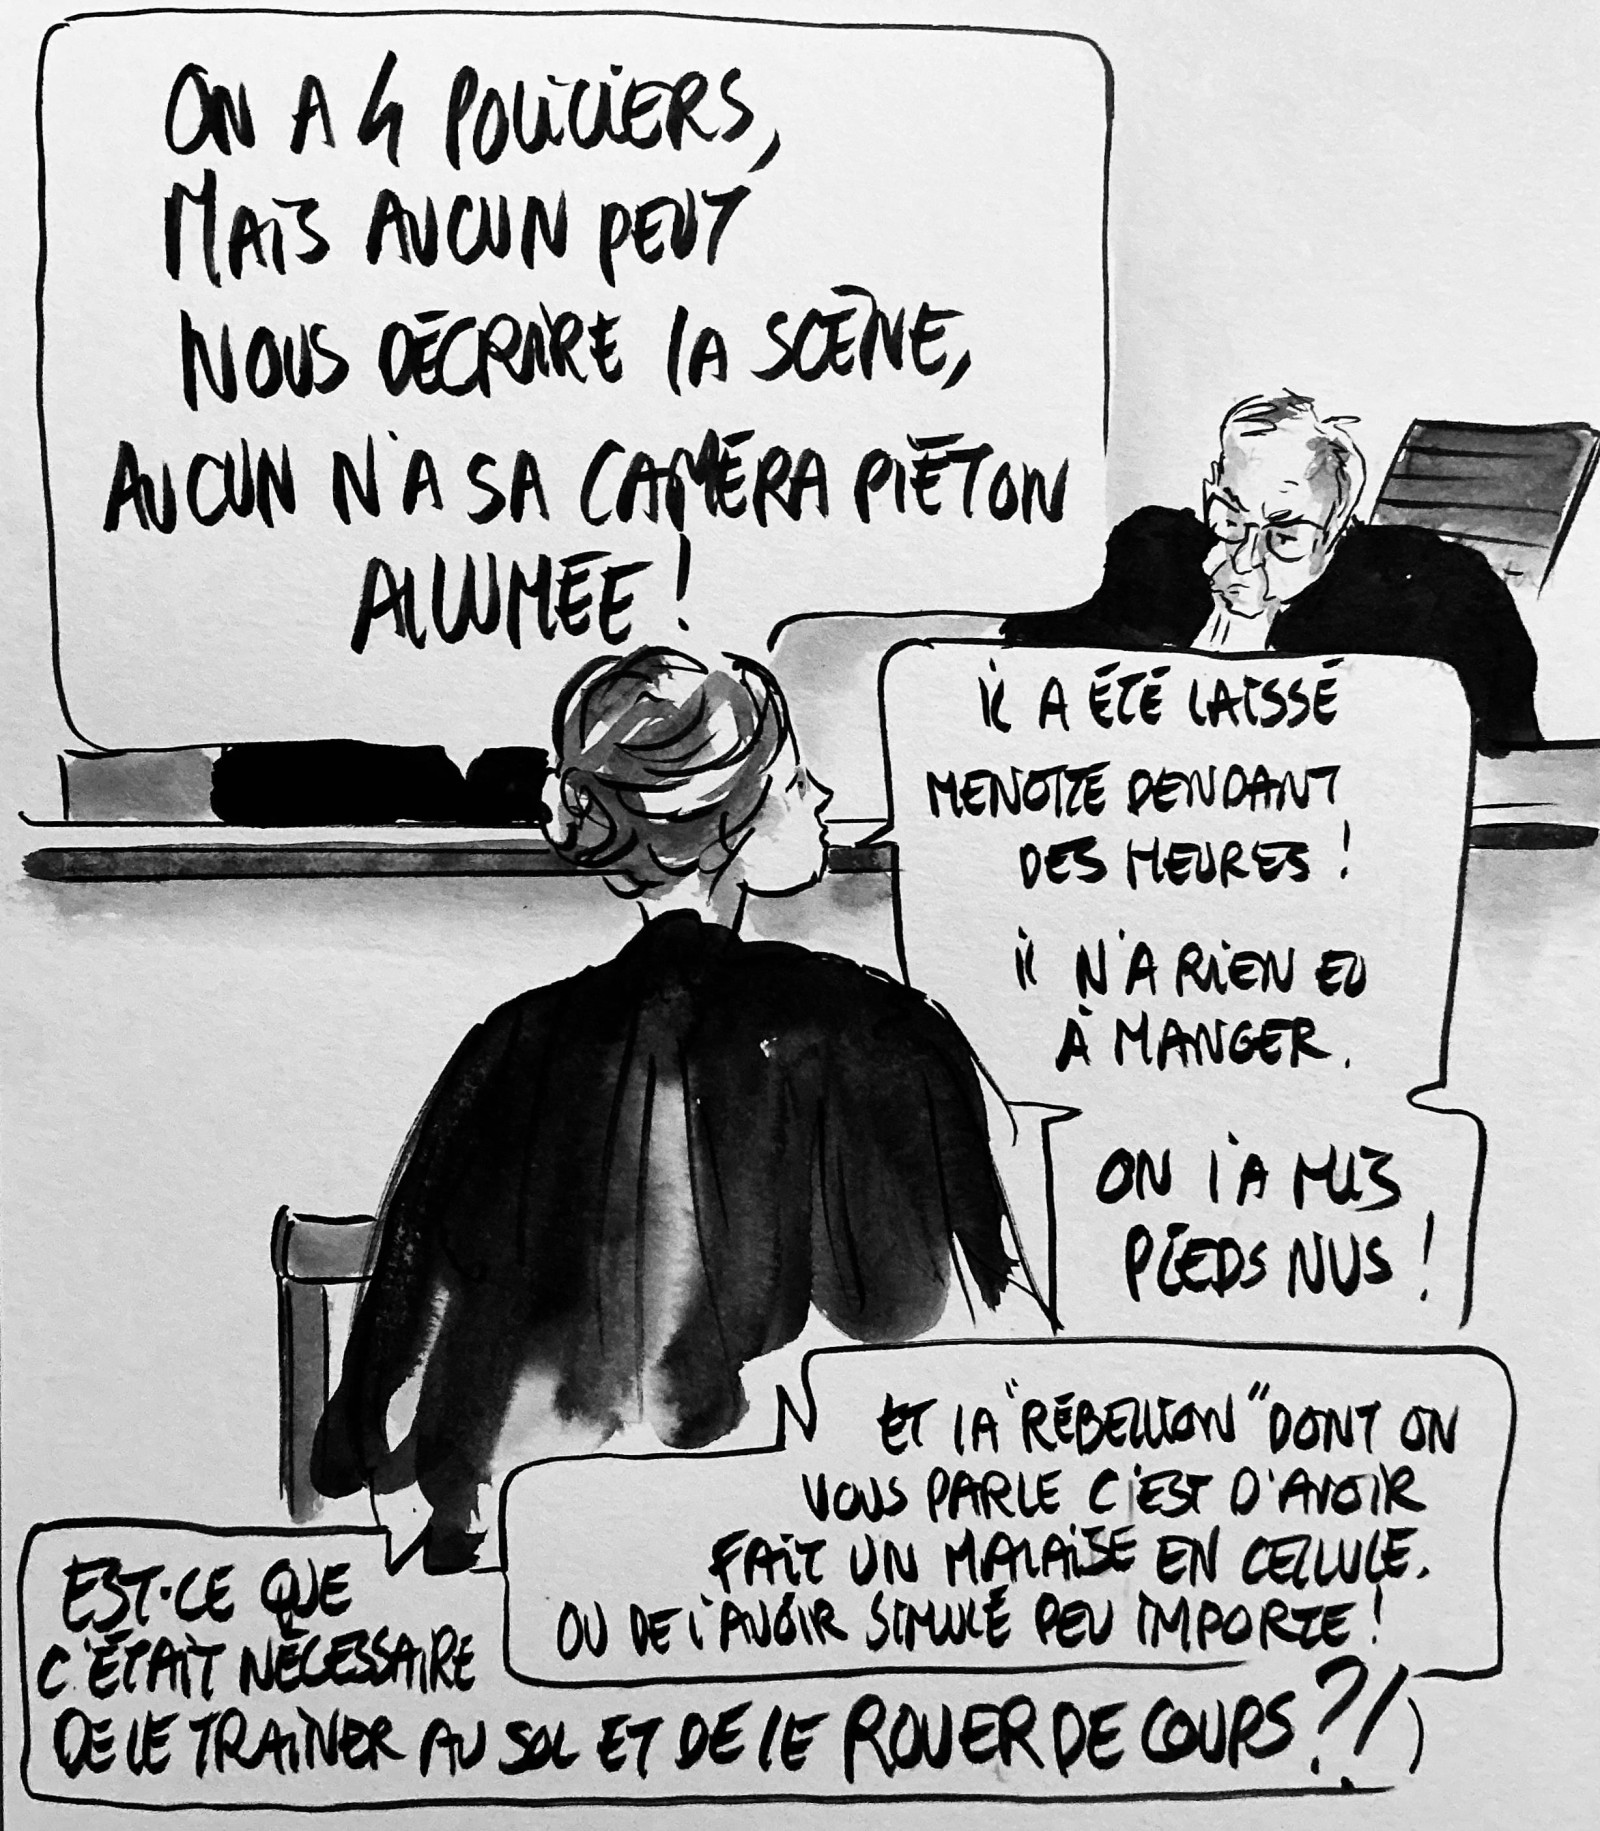 ON A 4 POLICIERS,
MAIS AUCUN PEUT
NOUS DÉCRIRE LA SCÈNE,
AUCUN N'A SA CAMÉRA PIÉTON
ALLUMÉE !
IL A ÉTÉ LAISSÉ
MENOTTÉ PENDANT
DES HEURES !
IL N'A RIEN EU
À MANGER.
ON L'A MIS
PIEDS NUS !
ET LA "RÉBELLION" DONT ON
VOUS PARLE C'EST D'AVOIR
FAIT UN MALAISE EN CELLULE.
OU DE L'AVOIR SIMULÉ PEU IMPORTE !
EST-CE QUE
C'ÉTAIT NÉCESSAIRE
DE LE TRAÎNER AU SOL ET DE LE ROUER DE COUPS ?!